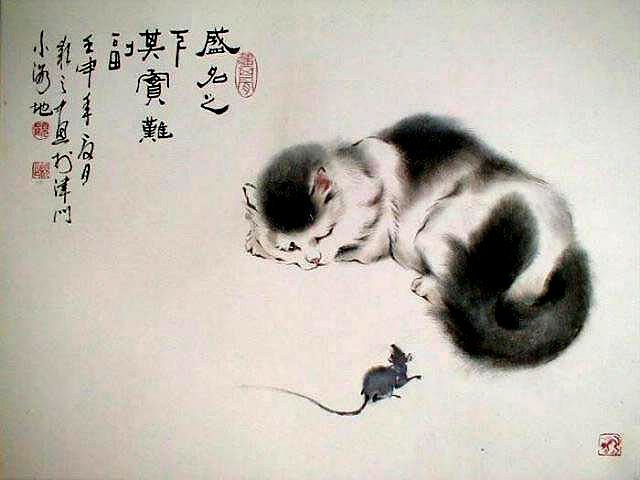 盛名之
下
其實難
副
壬申年夏月
之中 於津門
小海地